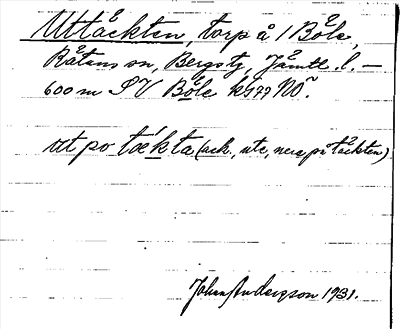 Uttäckten, torp å 1 Böle,
Rätans sn, Bergs tg, Jämtl. l. —
600 m SV Böle k:a NO.
ut po tækta (ack., ute, nera på täckten)
Johan Andersson 1931.